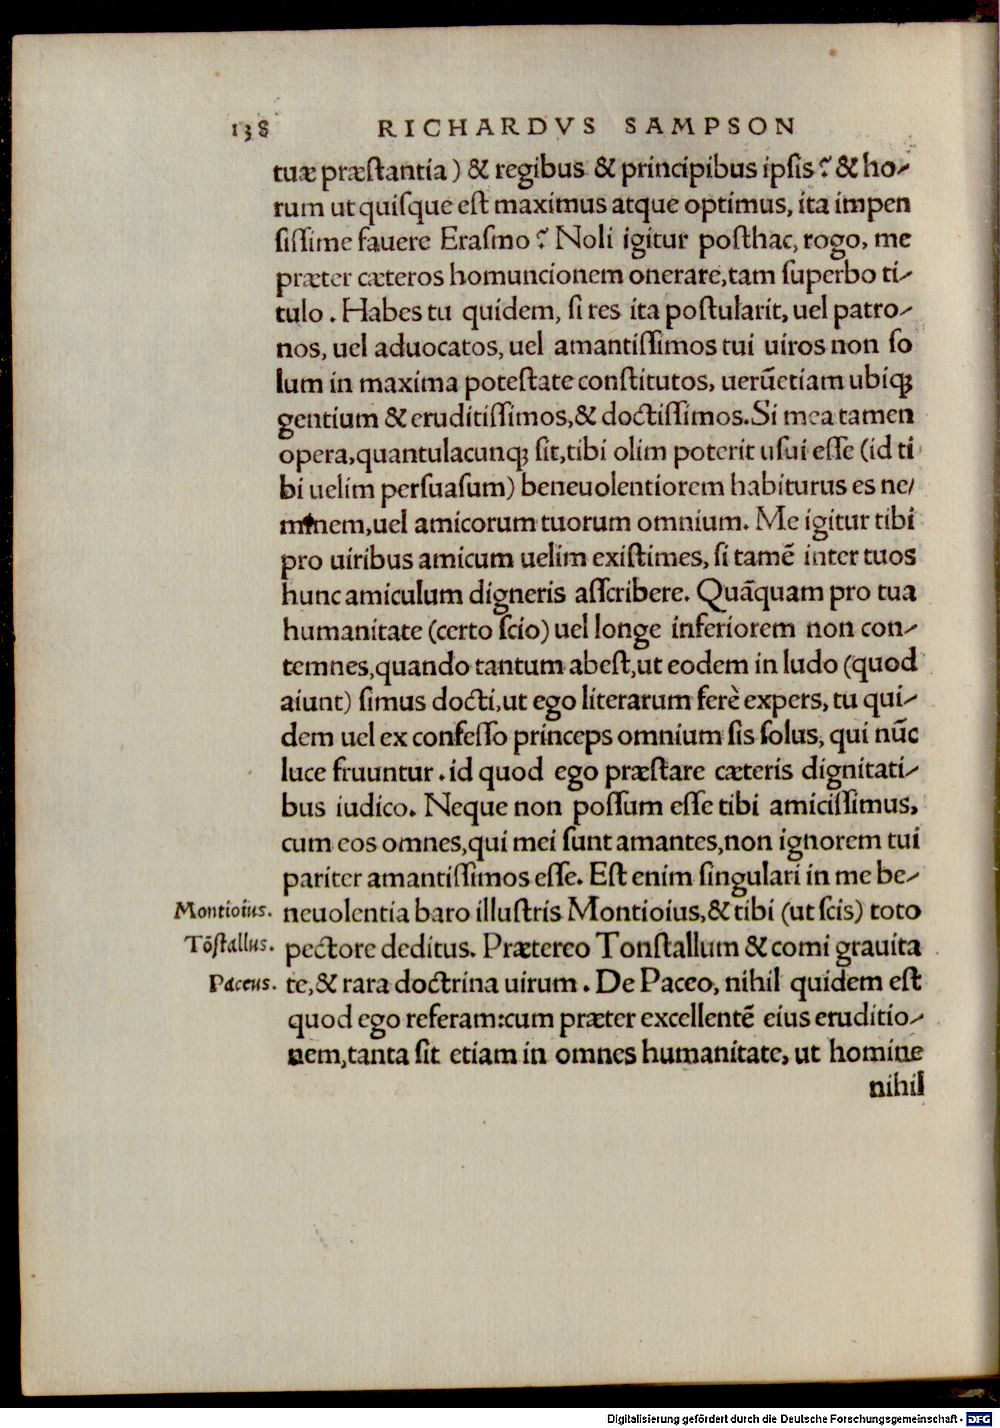 138 RICHARDVS SAMPSON
tuæ præſtantia) & regibus & principibus ipſis? & ho-
rum ut quiſque eſt maximus atque optimus, ita impen
ſiſſime fauere Eraſmo? Noli igitur poſthac, rogo, me
præter cæteros homuncionem onerare, tam ſuperbo ti-
tulo. Habes tu quidem, ſi res ita poſtularit, uel patro-
nos, uel aduocatos, uel amantiſſimos tui uiros non ſo
lum in maxima poteſtate conſtitutos, uerũetiam ubiqꝫ
gentium & eruditiſſimos, & doctiſſimos. Si mea tamen
opera, quantulacunqꝫ ſit, tibi olim poterit uſui eſſe (id ti
bi uelim perſuaſum) beneuolentiorem habiturus es ne/
minem, uel amicorum tuorum omnium. Me igitur tibi
pro uiribus amicum uelim exiſtimes, ſi tamẽ inter tuos
hunc amiculum digneris aſſcribere. Quãquam pro tua
humanitate (certo ſcio) uel longe inferiorem non con-
temnes, quando tantum abeſt, ut eodem in ludo (quod
aiunt) ſimus docti, ut ego literarum ferè expers, tu qui-
dem uel ex confeſſo princeps omnium ſis ſolus, qui nũc
luce fruuntur. id quod ego præſtare cæteris dignitati-
bus iudico. Neque non poſſum eſſe tibi amiciſſimus,
cum eos omnes, qui mei ſunt amantes, non ignorem tui
pariter amantiſſimos eſſe. Eſt enim ſingulari in me be-
Montioius. neuolentia baro illuſtris Montioius, & tibi (ut ſcis) toto
Tõſtallus. pectore deditus. Prætereo Tonſtallum & comi grauita
Paceus. te, & rara doctrina uirum. De Paceo, nihil quidem eſt
quod ego referam: cum præter excellentẽ eius eruditio-
nem, tanta ſit etiam in omnes humanitate, ut homine
nihil
Digitalisierung gefördert durch die Deutsche Forschungsgemeinschaft - DFG